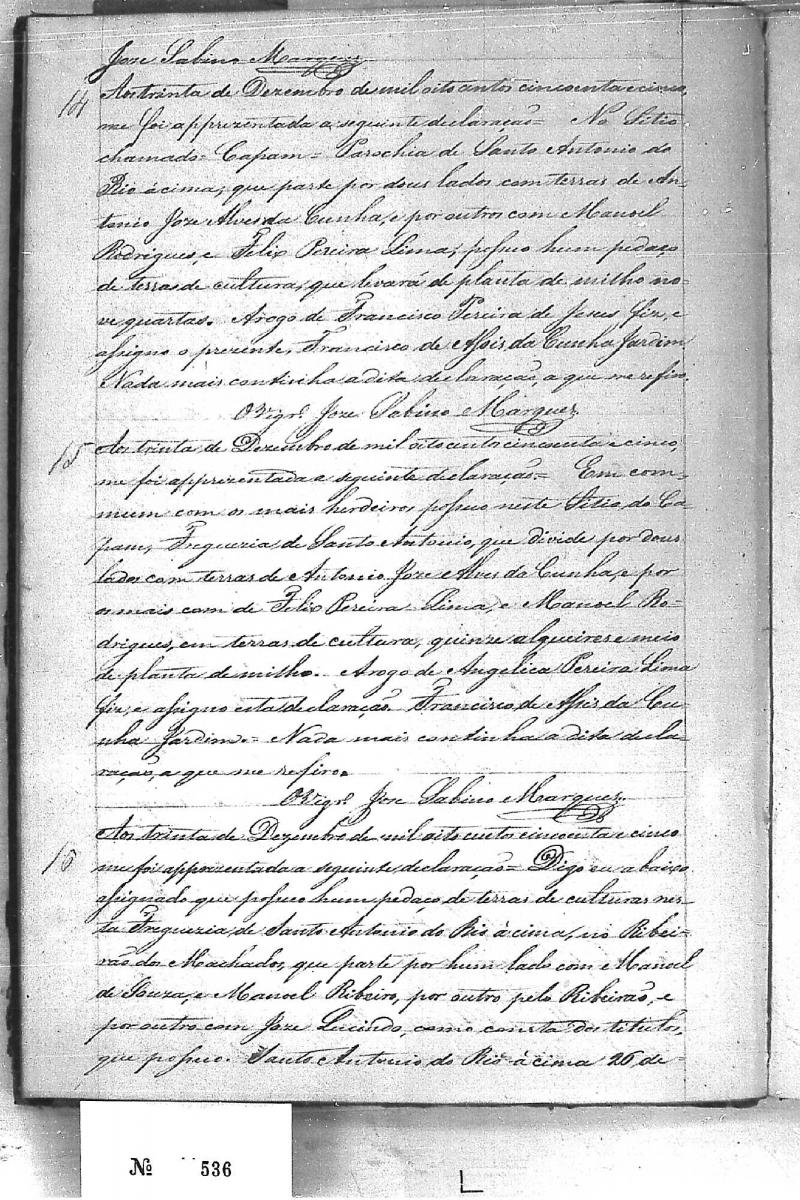 Joze Sabino Marques
14 Aos trinta de Dezembro de mil oito centos cincoenta e cinco,
me foi apprezentada a seguinte declaração = No Sitio
chamado = Capam = Parochia de Santo Antonio do
Rio àcima, que parte por dous lados com terras de An-
tonio Joze Alves da Cunha, e por outros com Manoel
Rodrigues, e Felix Pereira Lima, possuo hum pedaço
de terras de cultura, que levará de planta de milho no-
ve quartas. Arogo de Francisco Pereira de Jesus fiz, e
assigno o prezente, Francisco de Assis da Cunha Jardim
Nada mais continha a dita declaração, a que me refiro.
O Vigr.º Joze Sabino Marques
15 Aos trinta de Dezembro de mil oito cento cincoenta e cinco,
me foi apprezentada a seguinte declaração = Em com-
mum com os mais herdeiros possuo neste Sitio do Ca-
pam, Freguezia de Santo Antonio, que divide por dous
lados com terras de Antonio Joze Alves da Cunha, e por
os mais com de Felix Pereira Lima, e Manoel Ro-
drigues, em terras de cultura, quinze alqueires e meio
de planta de milho. Arogo de Angelica Pereira Lima
fiz, e assigno esta declaração Francisco de Assis da Cu-
nha Jardim. = Nada mais continha a dita decla-
ração, a que me refiro.
O Vigr.º Joze Sabino Marques
16 Aos trinta de Dezembro de mil oito cento cincoenta e cinco
me foi apprezentada a seguinte declaração = Digo eu abaixo
assignado que possuo hum pedaço de terras de culturas nes-
ta Freguezia de Santo Antonio do Rio àcima, no Ribei-
rão dos Machados, que parte por hum lado com Manoel
de Souza, e Manoel Ribeiro, por outro pelo Ribeirão, e
por outro com Joze Lucindo, como consta dos titulos,
que possuo. Santo Antonio do Rio àcima 26 de
Nº 536